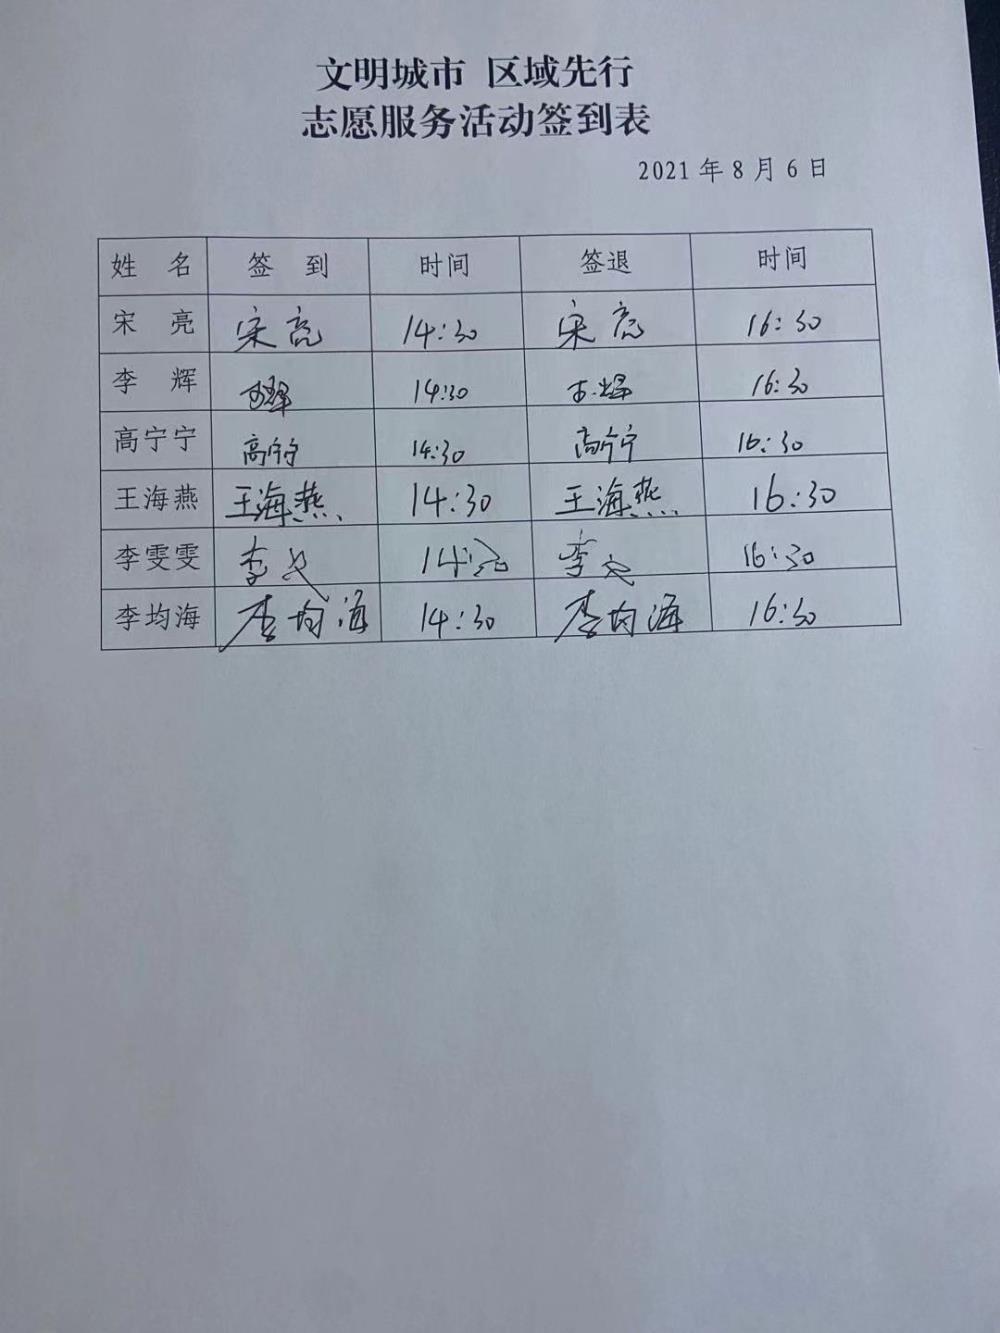 文明城市 区域先行
志愿服务活动签到表
2021年8月6日
姓 名 签 到 时间 签退 时间
宋 亮 宋亮 14:30 宋亮 16:30
李 辉 14:30 16:30
高宁宁 高宁宁 14:30 高宁宁 16:30
王海燕 王海燕 14:30 王海燕 16:30
李雯雯 李 14:30 李 16:30
李均海 李均海 14:30 李均海 16:30